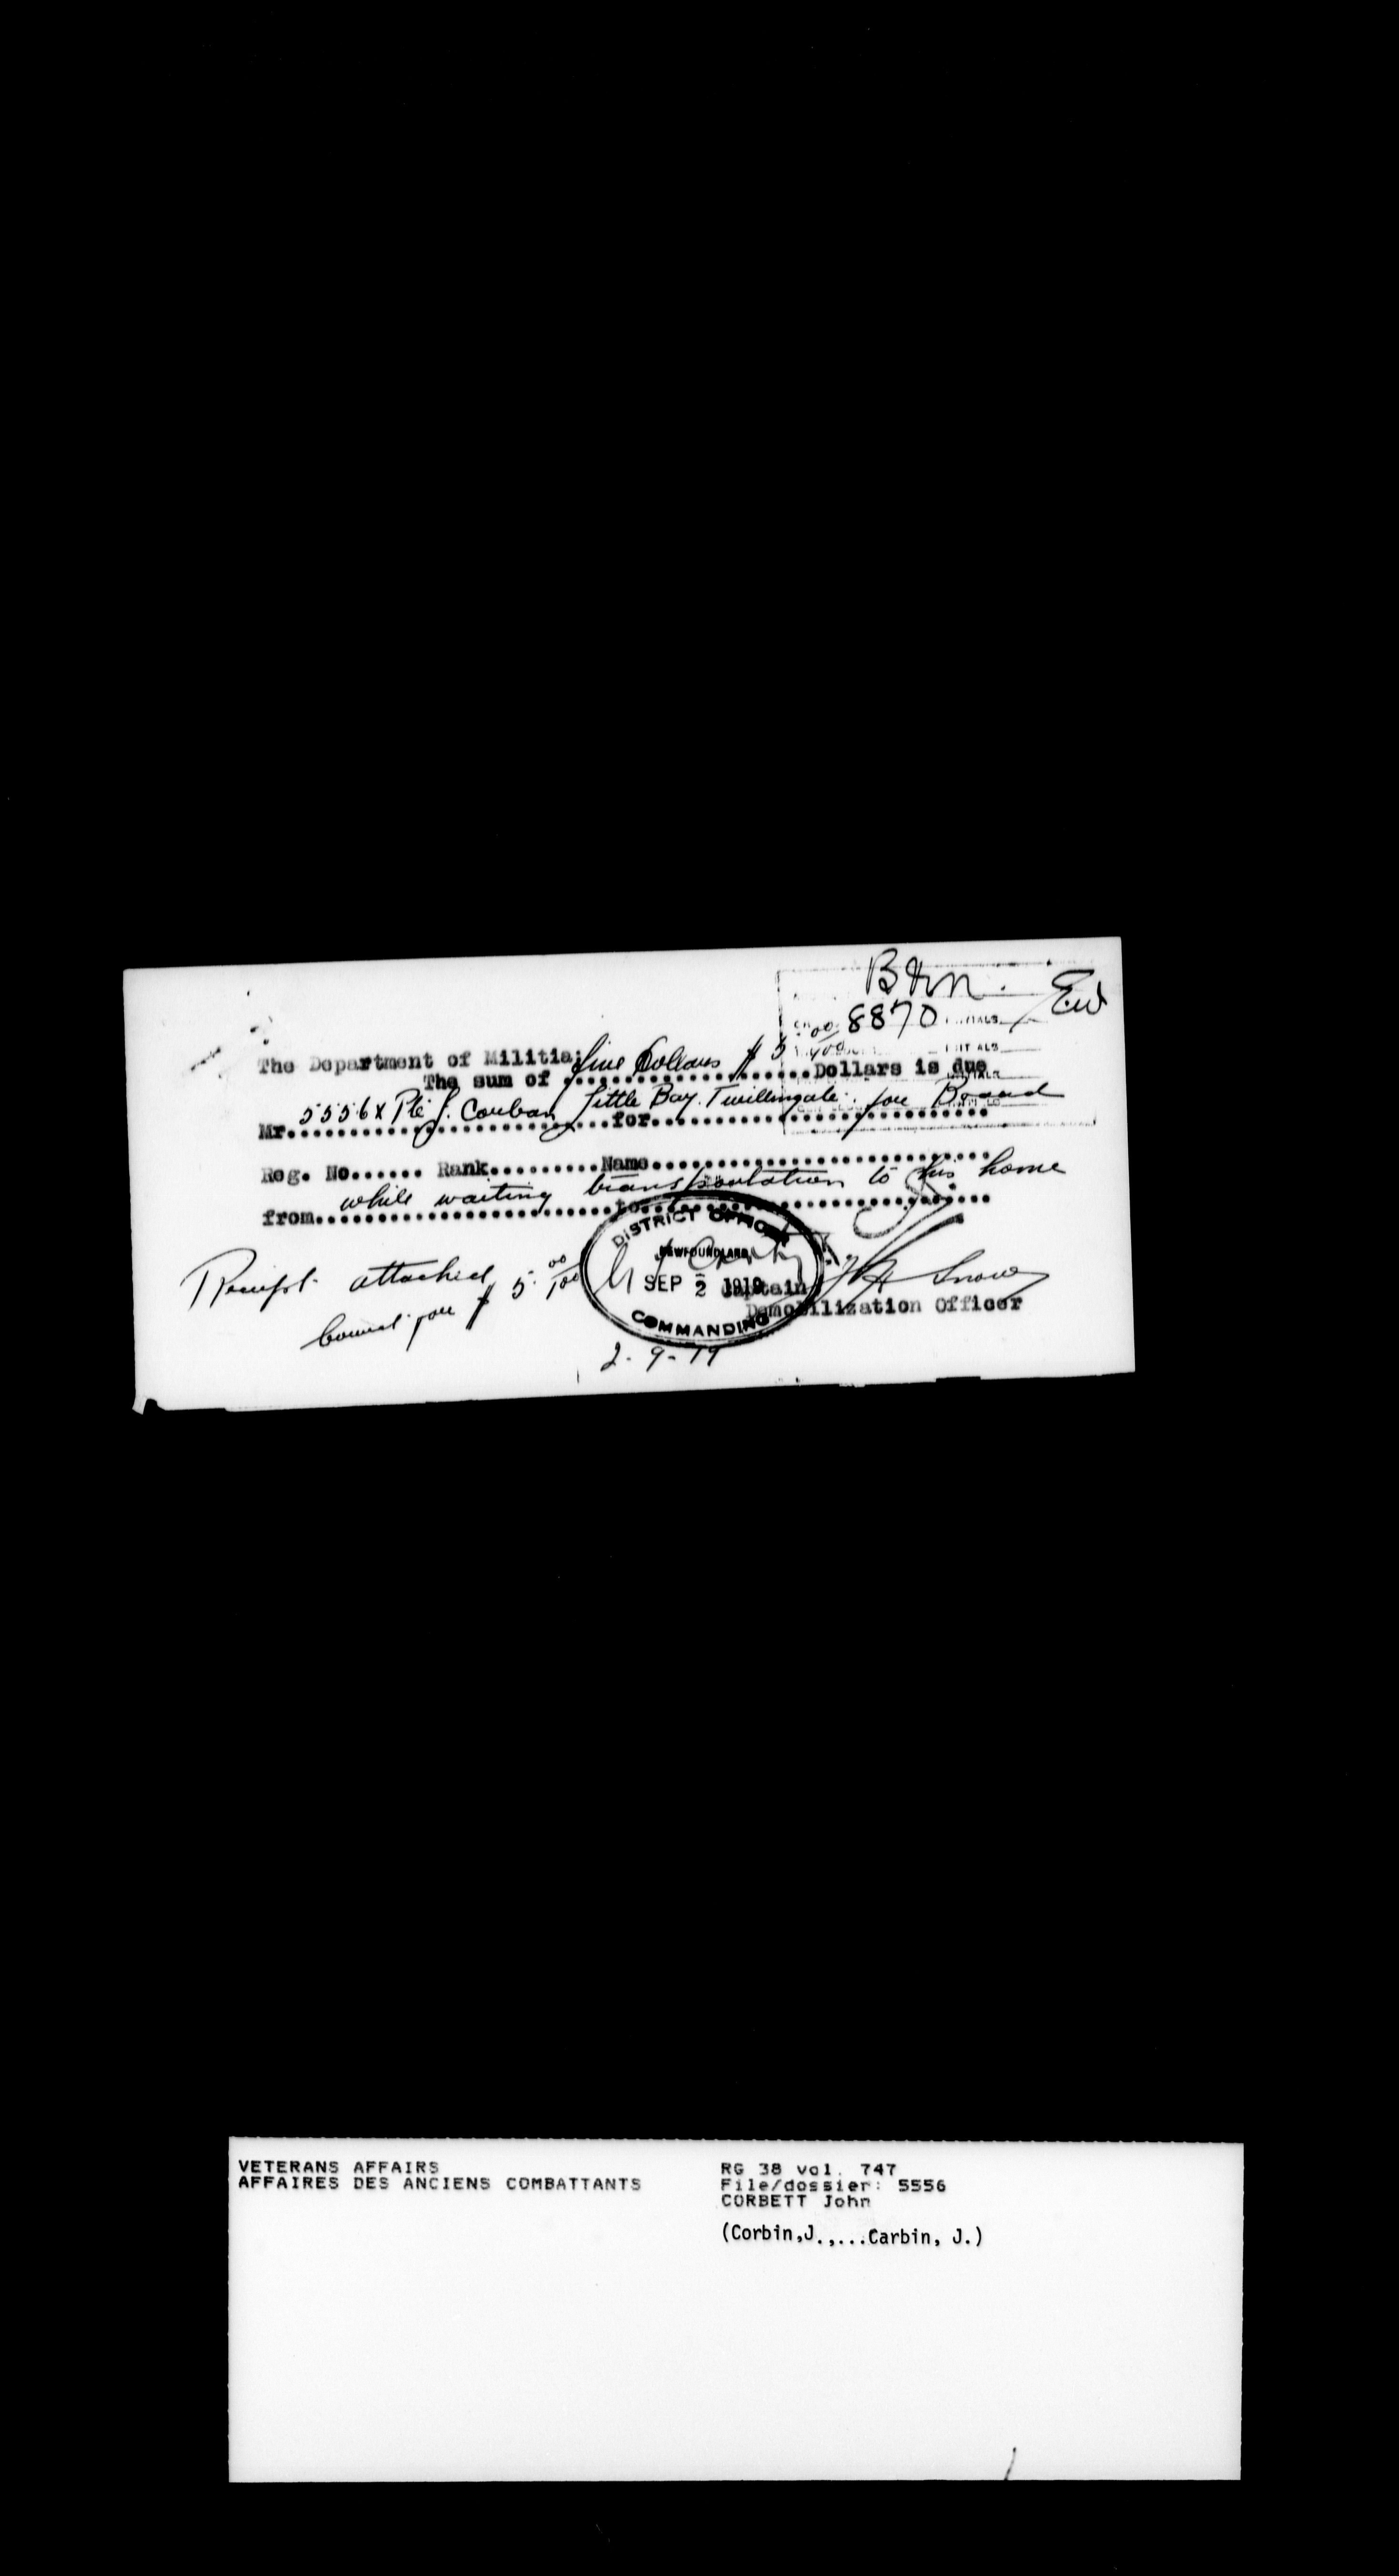 B & M.
Ew
8870
The Department of Militia:
The sum of five Dollars $ 5 00/100 Dollars is due
Mr. 5556 x Pte J. Corban Little Bay. Twillingate. for Board
for
Reg. No...... Rank.........Name
from while waiting transportation to his home
to
DISTRICT OFFICER
NEWFOUNDLAND
SEP 2 1919
COMMANDING
Receipt attached
Correct for $ 5. 00/100
Captain
Snow
Demobilization Officer
2-9-19
VETERANS AFFAIRS
AFFAIRES DES ANCIENS COMBATTANTS
RG 38 vol. 747
File/dossier: 5556
CORBETT John
(Corbin,J.,...Carbin, J.)